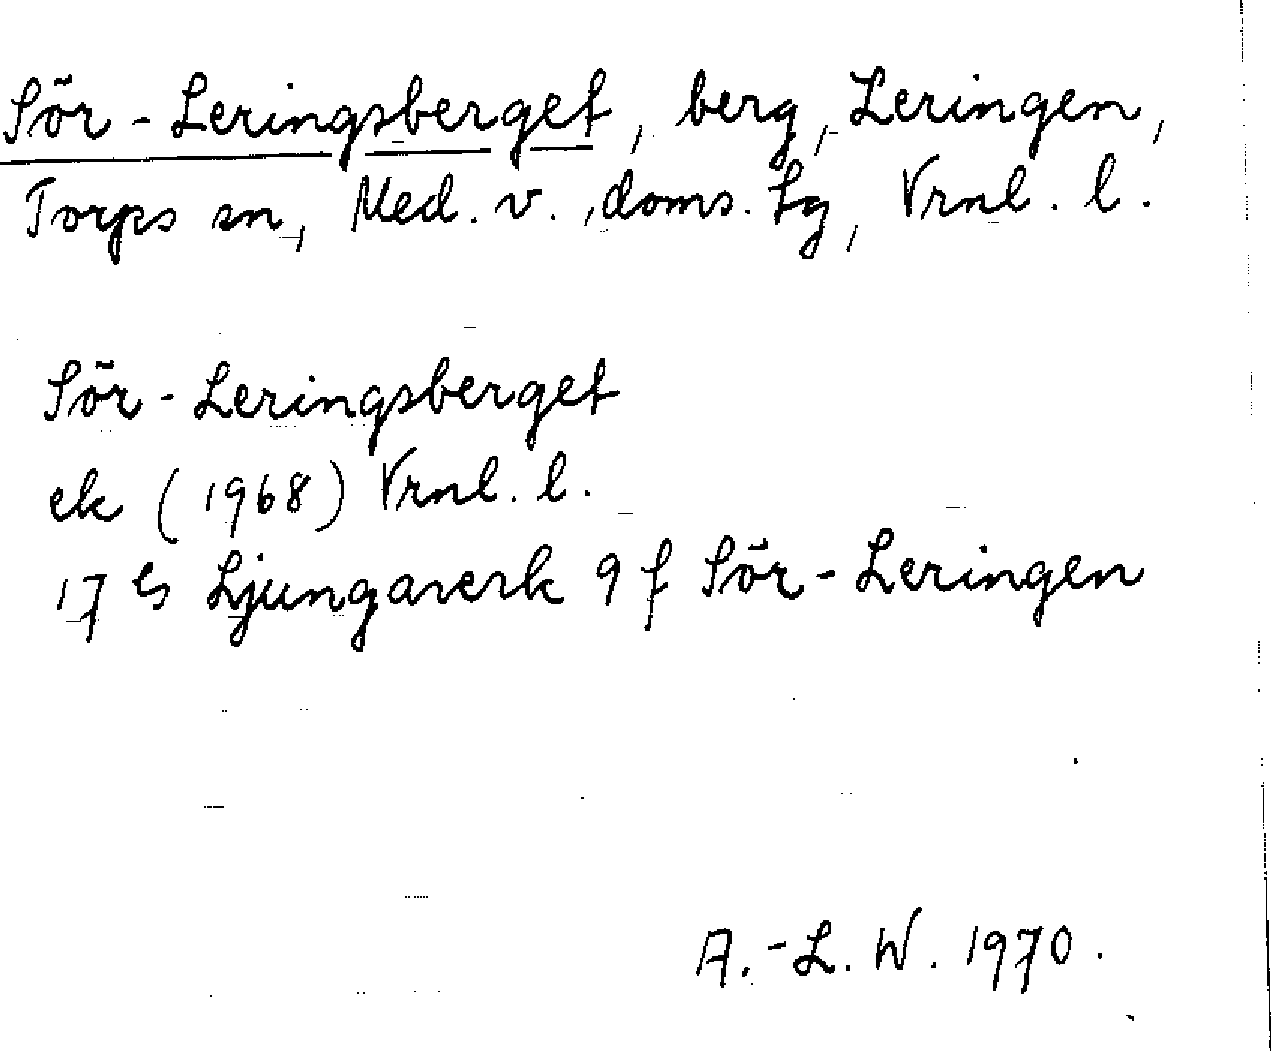 Sör-Leringsberget, berg, Leringen,
Torps sn, Med. v. doms. hg, Vrnl. l.
Sör-Leringsberget
ek (1968) Vrnl. l.
17 Ljungaverk 9 f Sör-Leringen
A.-L. W. 1970.